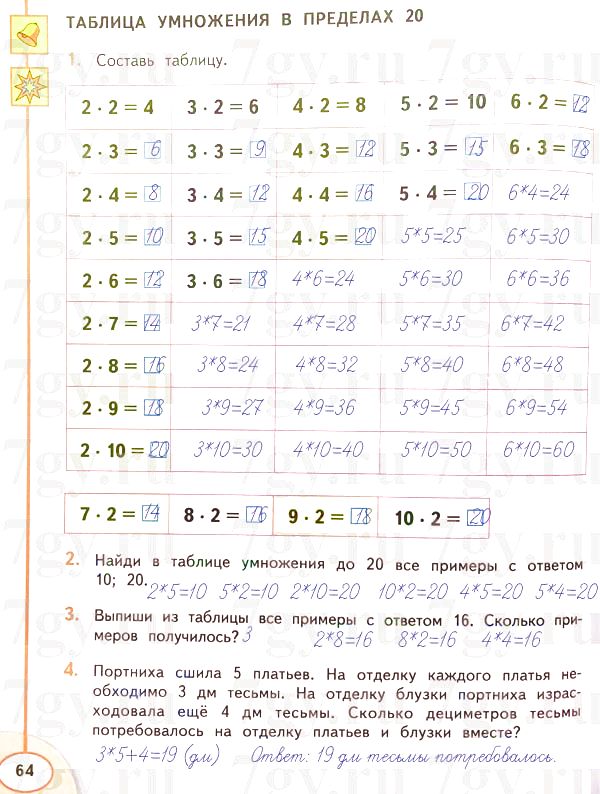 ТАБЛИЦА УМНОЖЕНИЯ В ПРЕДЕЛАХ 20
1. Составь таблицу.
2 · 2 = 4 3 · 2 = 6 4 · 2 = 8 5 · 2 = 10 6 · 2 = 12
2 · 3 = 6 3 · 3 = 9 4 · 3 = 12 5 · 3 = 15 6 · 3 = 18
2 · 4 = 8 3 · 4 = 12 4 · 4 = 16 5 · 4 = 20 6*4=24
2 · 5 = 10 3 · 5 = 15 4 · 5 = 20 5*5=25 6*5=30
2 · 6 = 12 3 · 6 = 18 4*6=24 5*6=30 6*6=36
2 · 7 = 14 3*7=21 4*7=28 5*7=35 6*7=42
2 · 8 = 16 3*8=24 4*8=32 5*8=40 6*8=48
2 · 9 = 18 3*9=27 4*9=36 5*9=45 6*9=54
2 · 10 = 20 3*10=30 4*10=40 5*10=50 6*10=60
7 · 2 = 14 8 · 2 = 16 9 · 2 = 18 10 · 2 = 20
2. Найди в таблице умножения до 20 все примеры с ответом
10; 20. 2*5=10 5*2=10 2*10=20 10*2=20 4*5=20 5*4=20
3. Выпиши из таблицы все примеры с ответом 16. Сколько при-
меров получилось? 3 2*8=16 8*2=16 4*4=16
4. Портниха сшила 5 платьев. На отделку каждого платья не-
обходимо 3 дм тесьмы. На отделку блузки портниха израс-
ходовала ещё 4 дм тесьмы. Сколько дециметров тесьмы
потребовалось на отделку платьев и блузки вместе?
3*5+4=19 (дм) Ответ: 19 дм тесьмы потребовалось.
64
7gy.ru